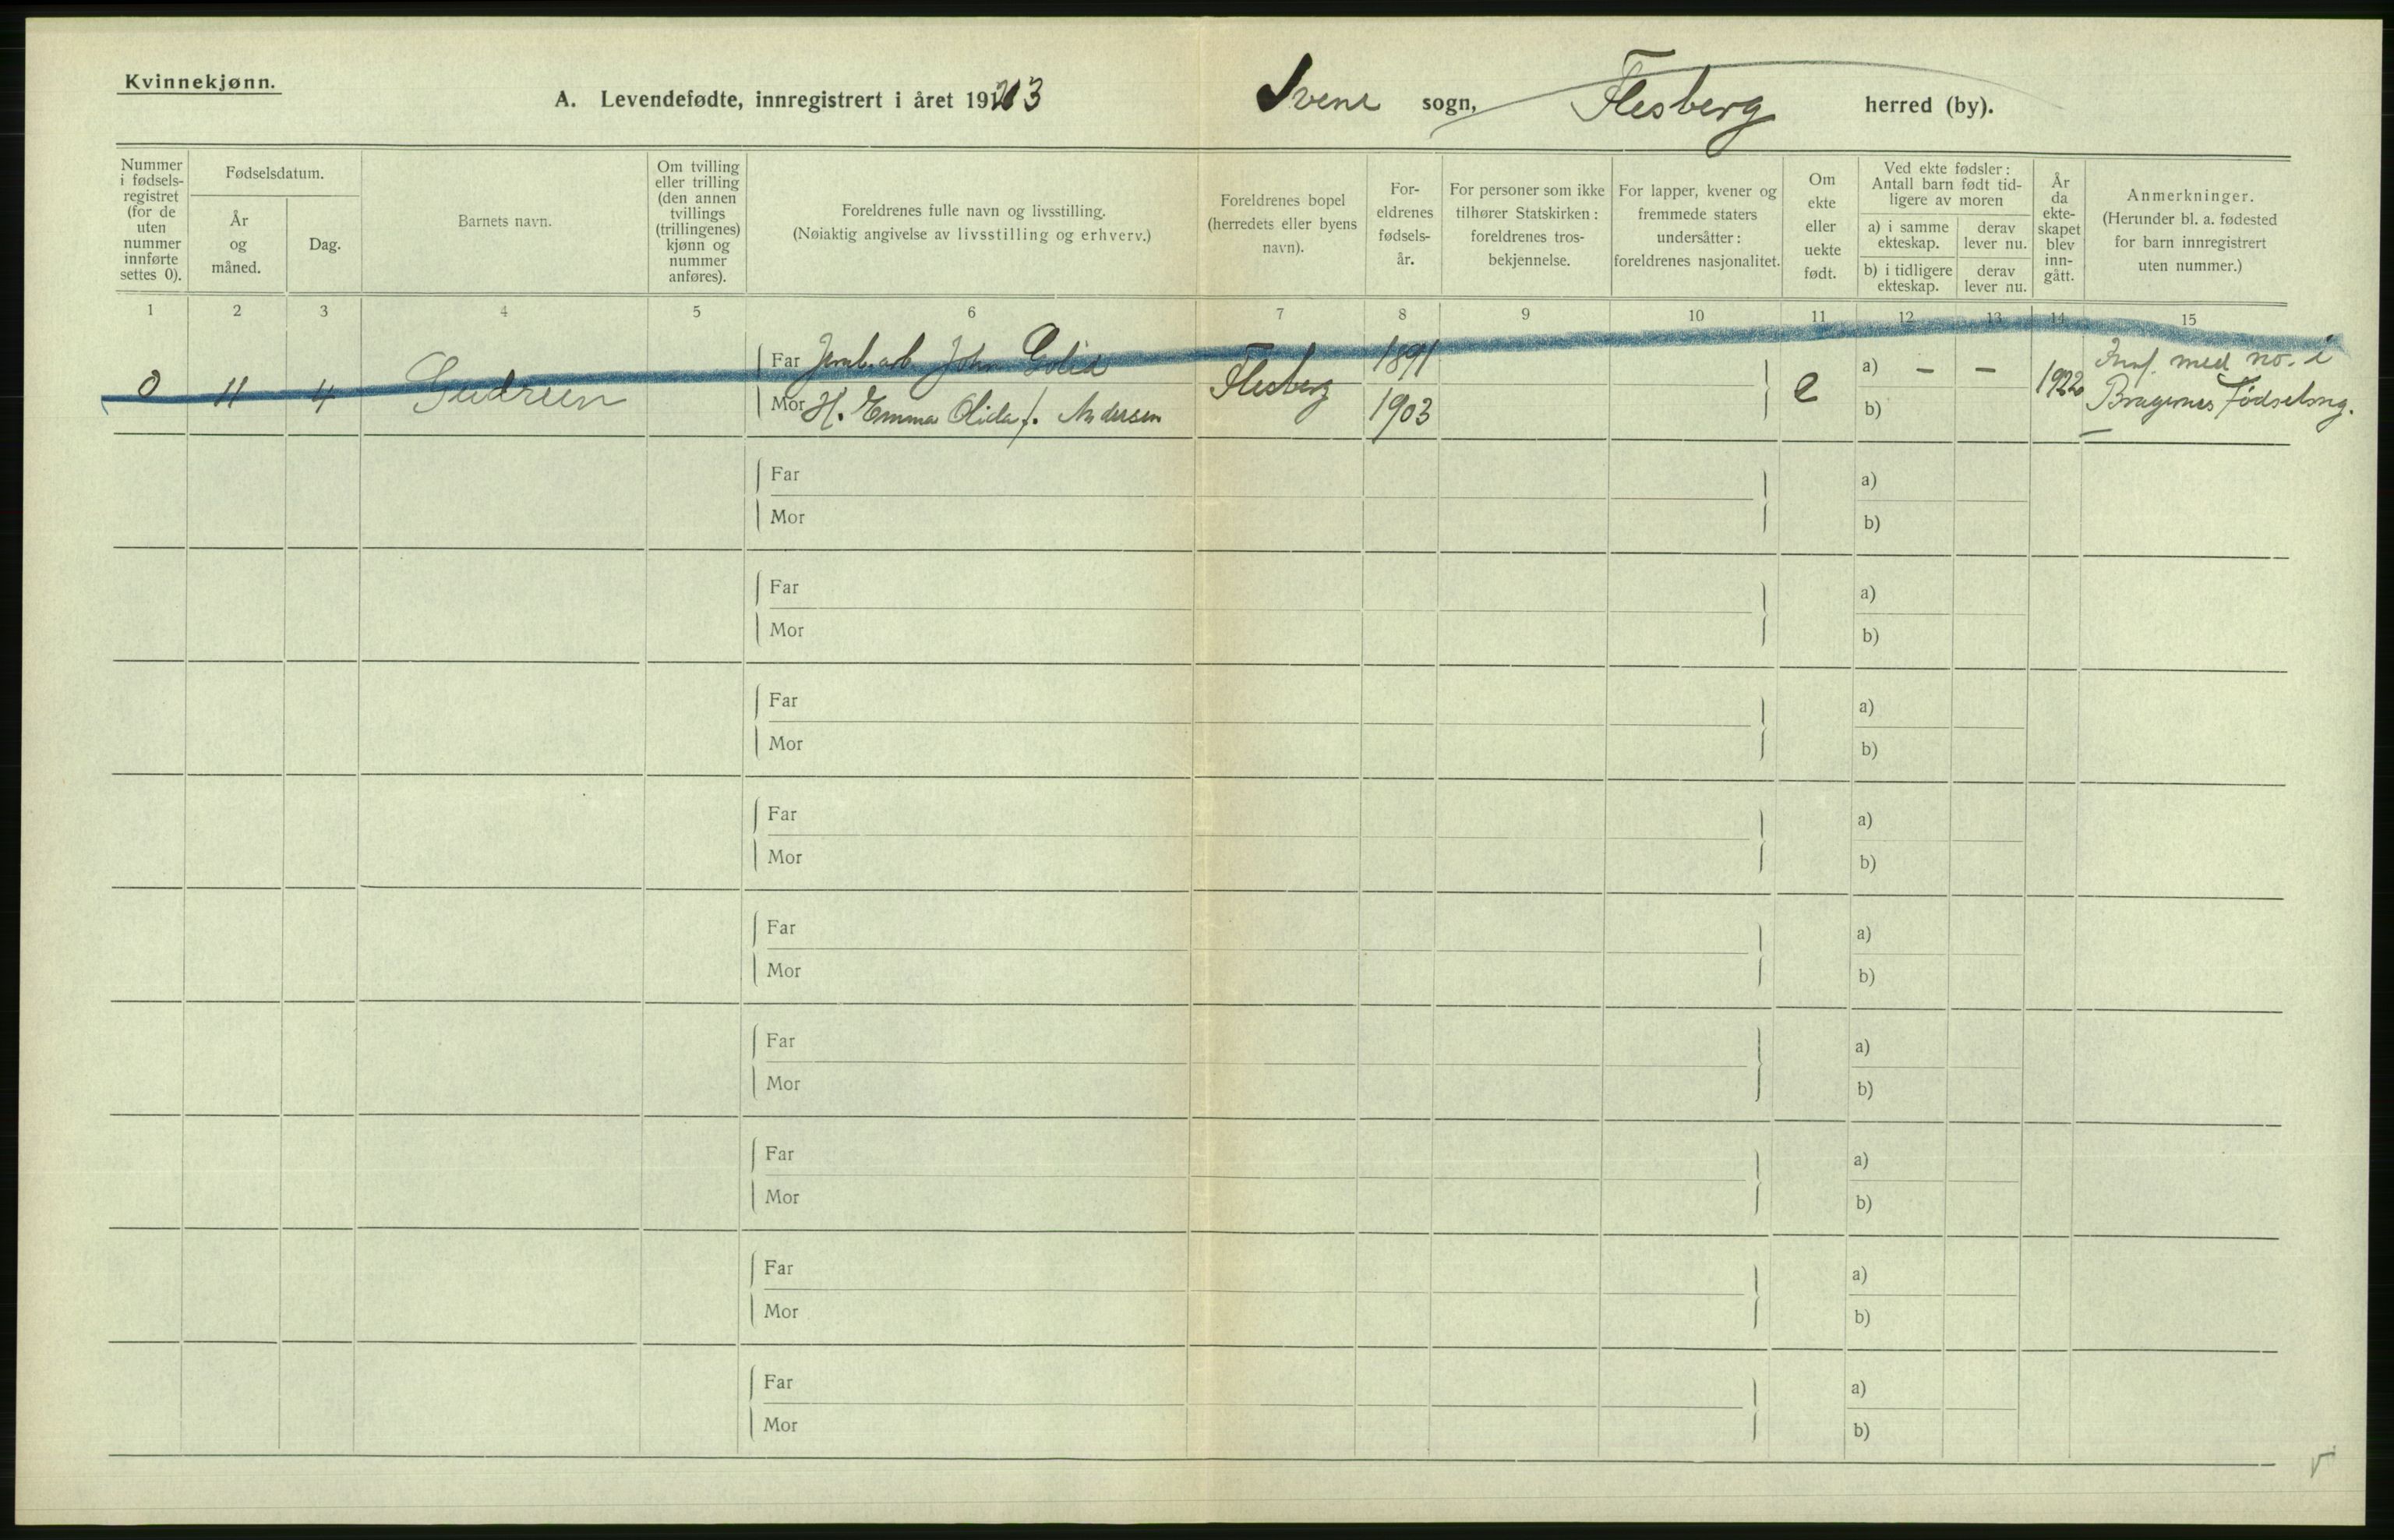 Kvinnekjønn.
A. Levendefødte, innregistrert i året 1923
Svene sogn, Flesberg herred (by).
Nummer i fødsels-registret (for de uten nummer innførte settes 0).
Fødselsdatum.
År og måned.
Dag.
Barnets navn.
Om tvilling eller trilling (den annen tvillings (trillingenes) kjønn og nummer anføres).
Foreldrenes fulle navn og livsstilling.
(Nøiaktig angivelse av livsstilling og erhverv.)
Foreldrenes bopel (herredets eller byens navn).
For-eldrenes fødsels-år.
For personer som ikke tilhører Statskirken: foreldrenes tros-bekjennelse.
For lapper, kvener og fremmede staters undersåtter: foreldrenes nasjonalitet.
Om ekte eller uekte født.
Ved ekte fødsler: Antall barn født tid-ligere av moren
a) i samme ekteskap.
derav lever nu.
b) i tidligere ekteskap.
derav lever nu.
År da ekte-skapet blev inn-gått.
Anmerkninger.
(Herunder bl. a. fødested for barn innregistrert uten nummer.)
1 2 3 4 5 6 7 8 9 10 11 12 13 14 15
0 4 Gudrun
Far Jernb.arb. John
Mor H. Emma Olida f. Andersen
Flesberg
1891
1903
e
a) – –
b)
1922
Innf. med no. i
Bragernes Fødselsreg.
Far a)
Mor b)
Far a)
Mor b)
Far a)
Mor b)
Far a)
Mor b)
Far a)
Mor b)
Far a)
Mor b)
Far a)
Mor b)
Far a)
Mor b)
Far a)
Mor b)